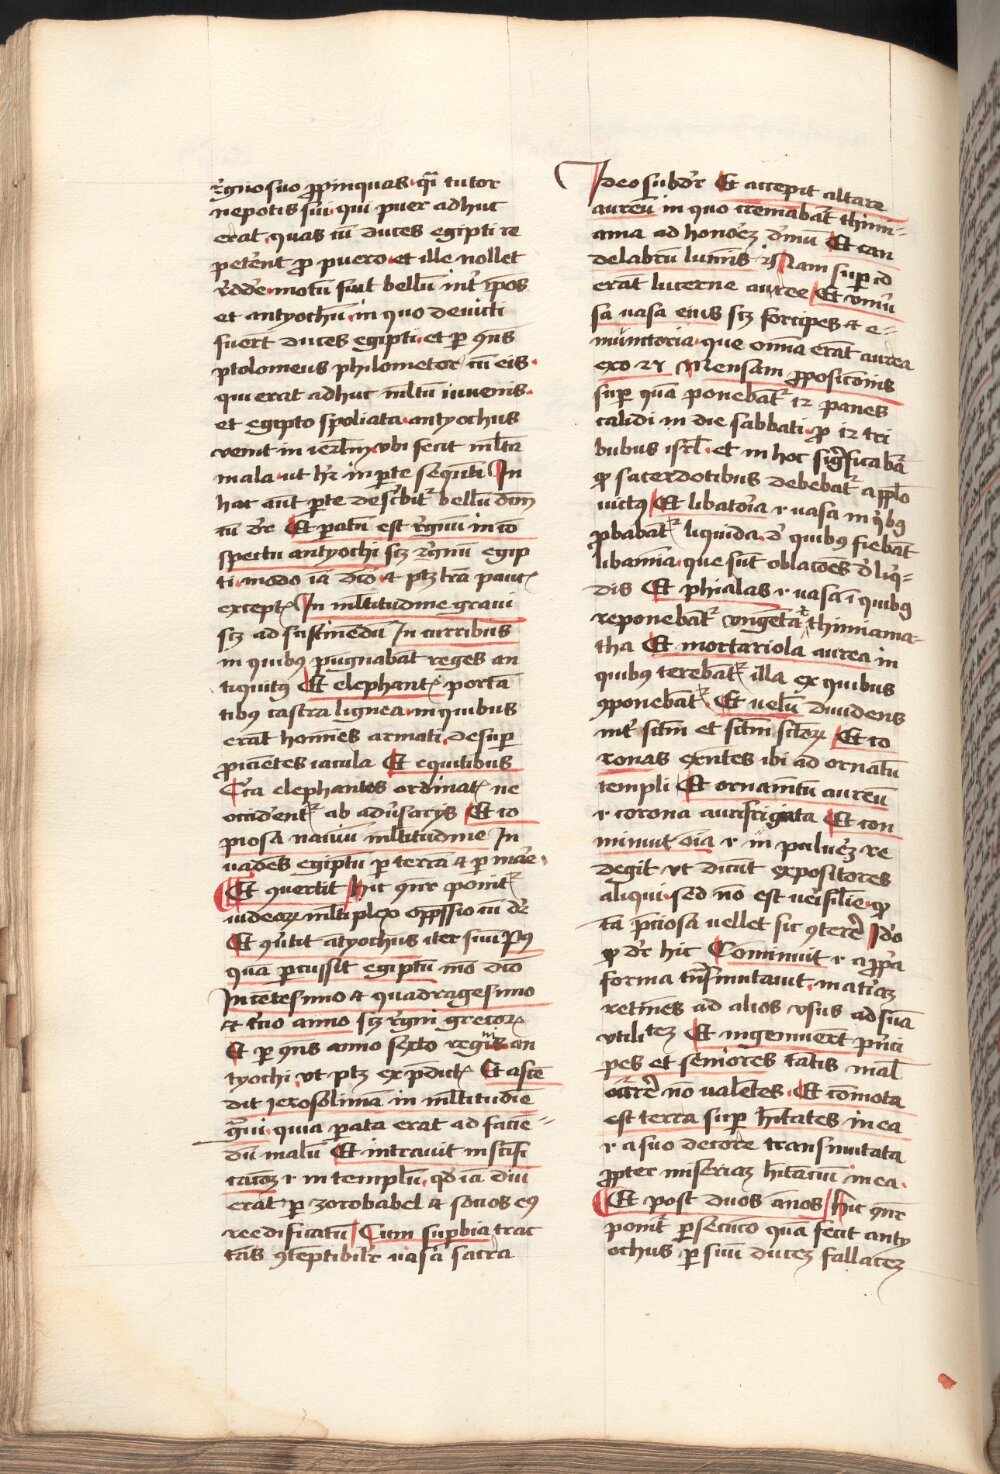 rͤgno suo ꝓpinquas· qͣi tutor
nepotis sui· qui puer adhuc
erat· quas cū duces egipti re
peteͬnt ꝓ puero· et ille nollet
rͤddeͬe· motū fuit bellū int̕ ip̄os
et antyochū· in quo deuicti
fueͬt duces egipti· et ꝑ ꝯn̄s
ptolomeus philometor cū eis·
qui erat adhuc ml̄tū iuuenis·
et egipto spoliata· antyochus
venit in ierl̄m· vbi fecit ml̄ta
mala· ut hr̄ in ꝑte sequēti In
hac aūt ꝑte desc̕bit᷑ bellū dcm̄
cū dr̄ Et patū est rͤgnū in cō
spectu antyochi scꝫ rͤgnū egip
ti· modo iā dc̄o· ⁊ ptꝫ lr̄a paucꝭ
exceptꝭ In ml̄titudine graui
scꝫ ad sustinedū In curribus
in quibus pugnabāt reges an
tiquitꝰ Et elephantꝭ porta
tibꝰ castra lignea· in quibus
erāt hoīnes armati· desuꝑ
ꝓicietes iacula Et equitibus
Cͬca elephantes ordinatꝭ ne
occident᷑ ab adūsarijs Et co
piosa nauiū ml̄titudine In
uades egiptū ꝑ terrā ⁊ ꝑ maͬe·
Et ꝯuertit Hic ꝯn̄r ponit᷑
iudeoꝝ ml̄tiplex opp̄ssio cū dr̄
Et ꝯūtit ātyochus iter suū Pꝰ
quā ꝑcussit egiptū mō dc̄o
In cētesimo ⁊ quadragesimo
⁊ tͨio anno scꝫ rͤgni grecoꝝ
Et ꝑ ꝯn̄s anno sexto regis an
tyochi· vt ptꝫ ex p̄dictꝭ Et ascē
dit Jerosolimā in ml̄titudīe
gͣui· quia ꝑata erat ad facie=
dū malū Et intrauit in sc̄ifi
cacōeꝫ ·i· in templū· qd̄ iā diu
erat ꝑ zorobabel ⁊ socios eꝰ
reedificatū Cum suꝑbia trac
tās ꝯteptibilīt̕ vasa sacra
Ideo subdr̄ Et accepit altare
aureū in quo cremabāt᷑ thimi=
ama ad honoͬeꝫ dn̄i Et can
delabrū luminis Nam suꝑ id
erāt lucerne auree Et vniū̕
sa vasa eius scꝫ forcipes ⁊ e=
munctoria· que om̄a erāt aurea
exo 25 Mensam ꝓposicōnis
suꝑ quā ponebāt᷑ 12 panes
calidi in die sabbati· ꝓ 12 tri
bubus isrl̄· et in hoc sigͥficabāt᷑
ꝙ sacerdotibus debebat᷑ a pplo
victꝰ Et libatoria ·i· vasa in qͥbꝰ
ꝓbabāt᷑ liquida· d̕ quibꝰ fiebāt
libamīa· que sūt oblacōes d̕ liqͥ=
dis Et phialas ·i· vasa ī quibꝰ
reponebāt᷑ vngēta ⁊ thimiama=
tha Et mortariola aurea in
quibꝰ terebāt᷑ illa ex quibus
ꝯponebāt᷑· Et velū diuidens
int̕ sc̄tm et sc̄tm sc̄toꝝ Et co
ronas exn̄tes ibi ad ornatū
templi Et ornamētū aureū
·i· corona aurifrigiata Et con
minuit oīa ·i· in puluēꝫ re
degit vt dicūt expositores
aliqui· sed nō est veͬisil̄e· ꝙ
tā p̄ciosa vellet sic ꝯteͬeͬ Ido
ꝙ dr̄ hic Cominuit ·i· a ꝓpͥa
forma tͣnsmutauit· mat̕iaꝫ
retinēs ad alios vsus ad suā
vtilitateꝫ Et ingemueͬt pͥnci
pes et seniores tantis mal̄
occͬreͬ nō valentes· Et cōmota
est terra suꝑ hītātes in ea
·i· a suo decore transmutata
ꝓpter miseriaꝫ hītanciū in ea·
Et post duos annos Hic ꝯn̄r
ponit᷑ ꝑsecucō quā fecit anty
ochus ꝑ suū duceꝫ fallaceꝫ